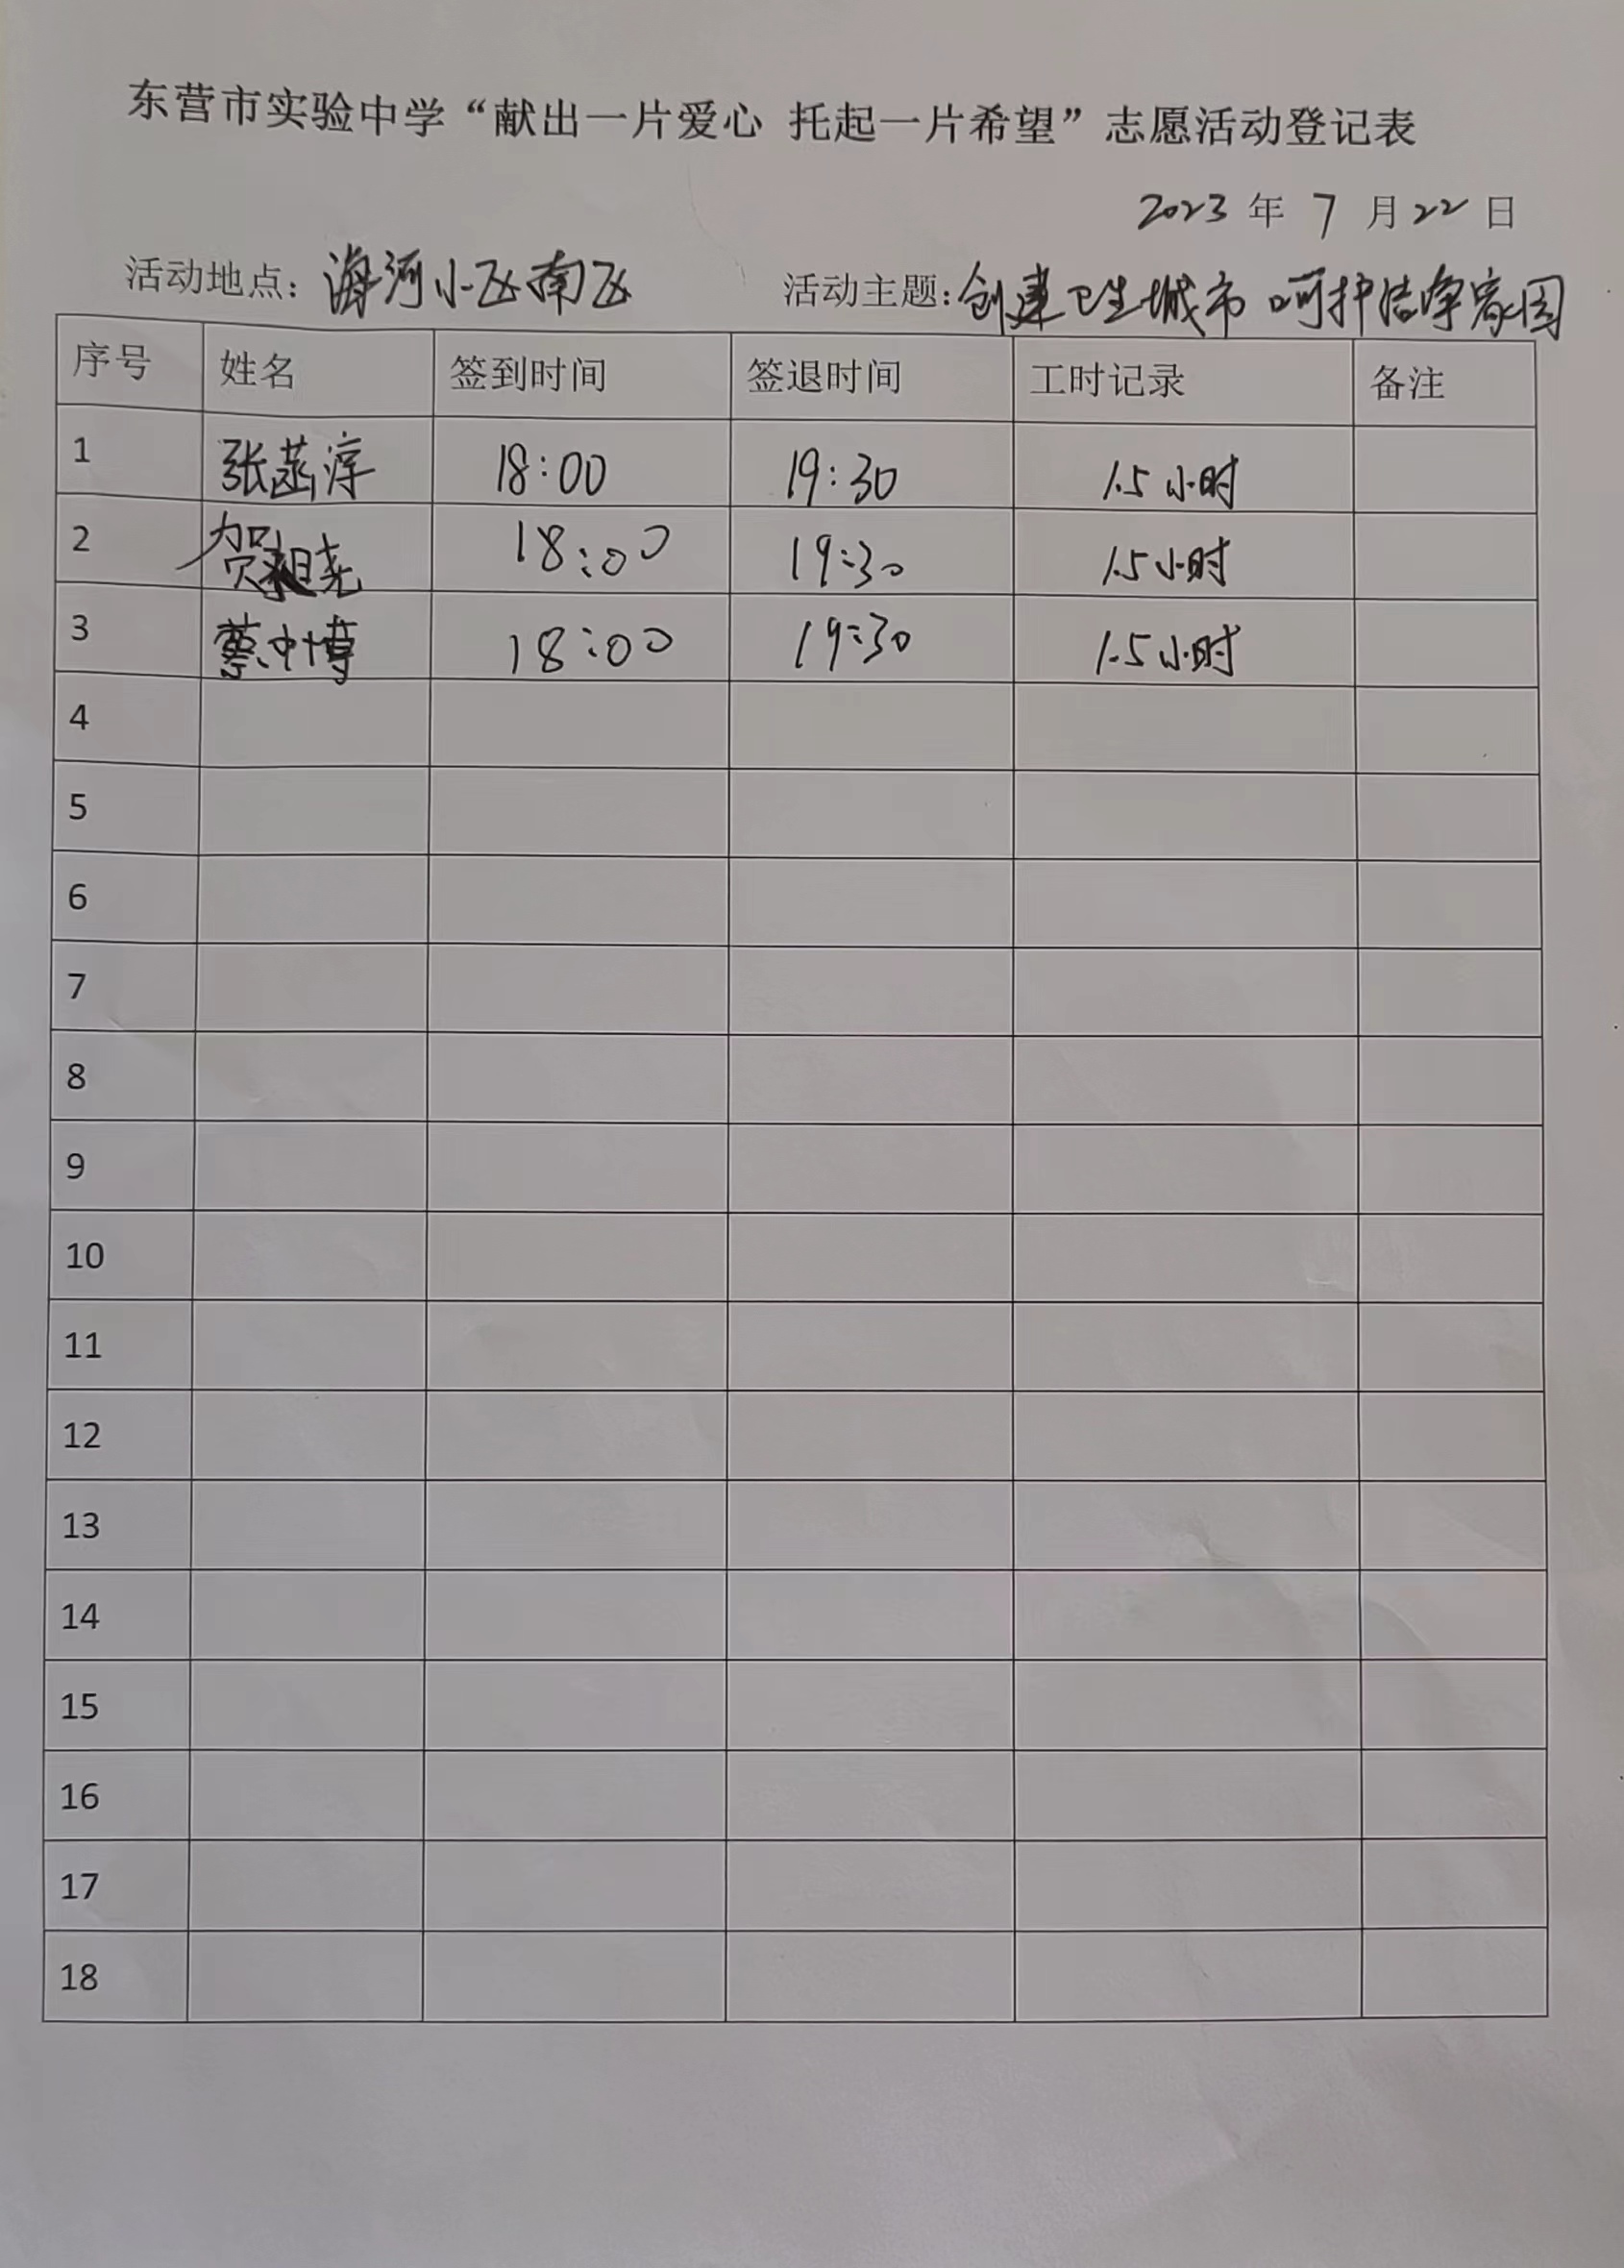 东营市实验中学“献出一片爱心 托起一片希望”志愿活动登记表
2023 年 7 月 22 日
活动地点：海河小区南区 活动主题：创建卫生城市 呵护洁净家园
序号 姓名 签到时间 签退时间 工时记录 备注
1 张菡淳 18:00 19:30 1.5小时
2 贺 尧 18:00 19:30 1.5小时
3 蔡中博 18:00 19:30 1.5小时
4
5
6
7
8
9
10
11
12
13
14
15
16
17
18